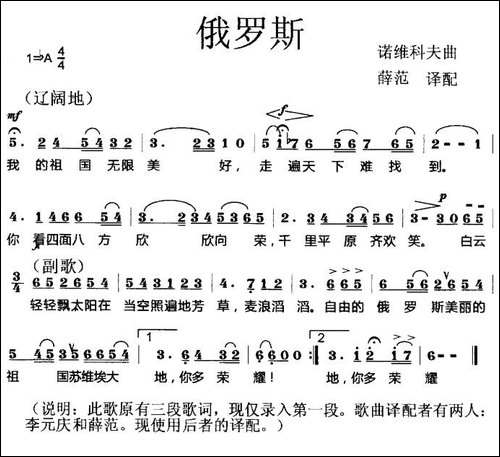 俄罗斯
1=A 4/4
诺维科夫曲
薛范 译配
（辽阔地）
mf f
5. 24 5432 | 3. 2310 | 5i76 567 65 | 2--1 |
我 的祖 国 无限 美 好， 走 遍天 下 难 找 到。
p
4. 1466 54 | 3. 2345365 | 2. 34 3456 | 3- 3065 |
你 看四面八 方 欣 欣向 荣， 千 里平 原 齐欢 笑。 白云
（副歌）
3/4 652654 | 543123 | 4. 712 | 3. 665 | 62654
轻轻飘太阳在 当空照遍地芳 草，麦浪滔 滔。自由的 俄 罗斯美丽的
1 2
5 4535 6654 | 3. 64 32 | 6600 :| 3. i2 i7 | 6-- ||
祖 国苏维埃大 地，你多 荣耀！ 地，你多 荣耀
（说明：此歌原有三段歌词，现仅录入第一段。歌曲译配者有两人：
李元庆和薛范。现使用后者的译配。）